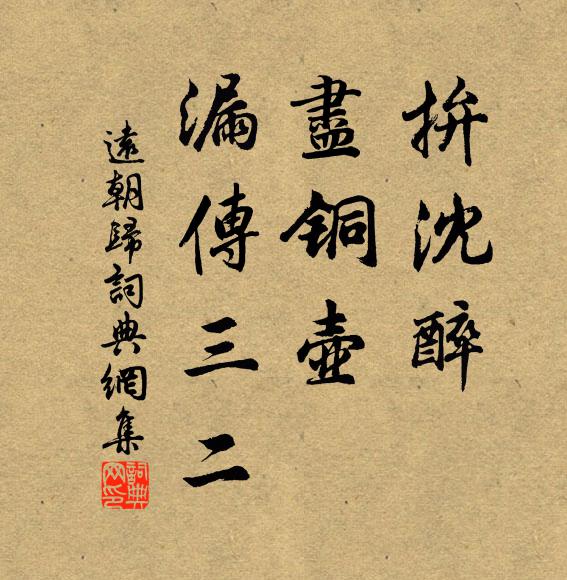 拚沈醉
盡銅壺
漏傳三二
遠朝歸詞典網集
詞典网印